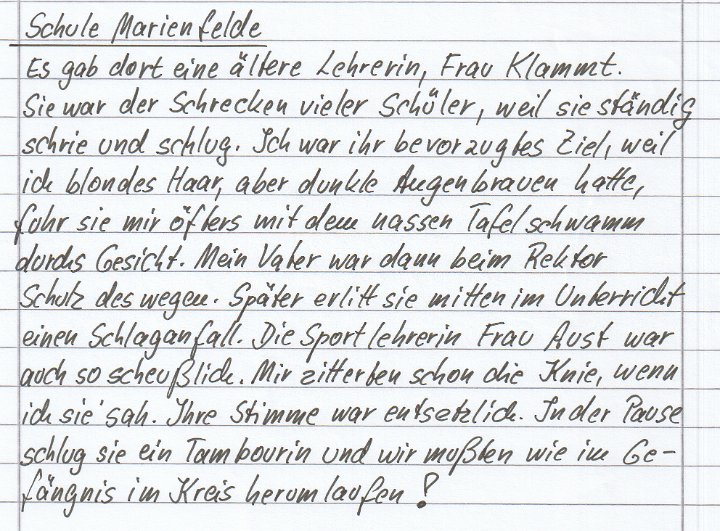 Schule Marienfelde
Es gab dort eine ältere Lehrerin, Frau Klammt.
Sie war der Schrecken vieler Schüler, weil sie ständig
schrie und schlug. Ich war ihr bevorzugtes Ziel, weil
ich blondes Haar, aber dunkle Augenbrauen hatte,
fuhr sie mir öfters mit dem nassen Tafelschwamm
durchs Gesicht. Mein Vater war dann beim Rektor
Scholz deswegen. Später erlitt sie mitten im Unterricht
einen Schlaganfall. Die Sportlehrerin Frau Aust war
auch so scheußlich. Mir zitterten schon die Knie, wenn
ich sie sah. Ihre Stimme war entsetzlich. In der Pause
schlug sie ein Tambourin und wir mußten wie im Ge-
fängnis im Kreis herumlaufen!